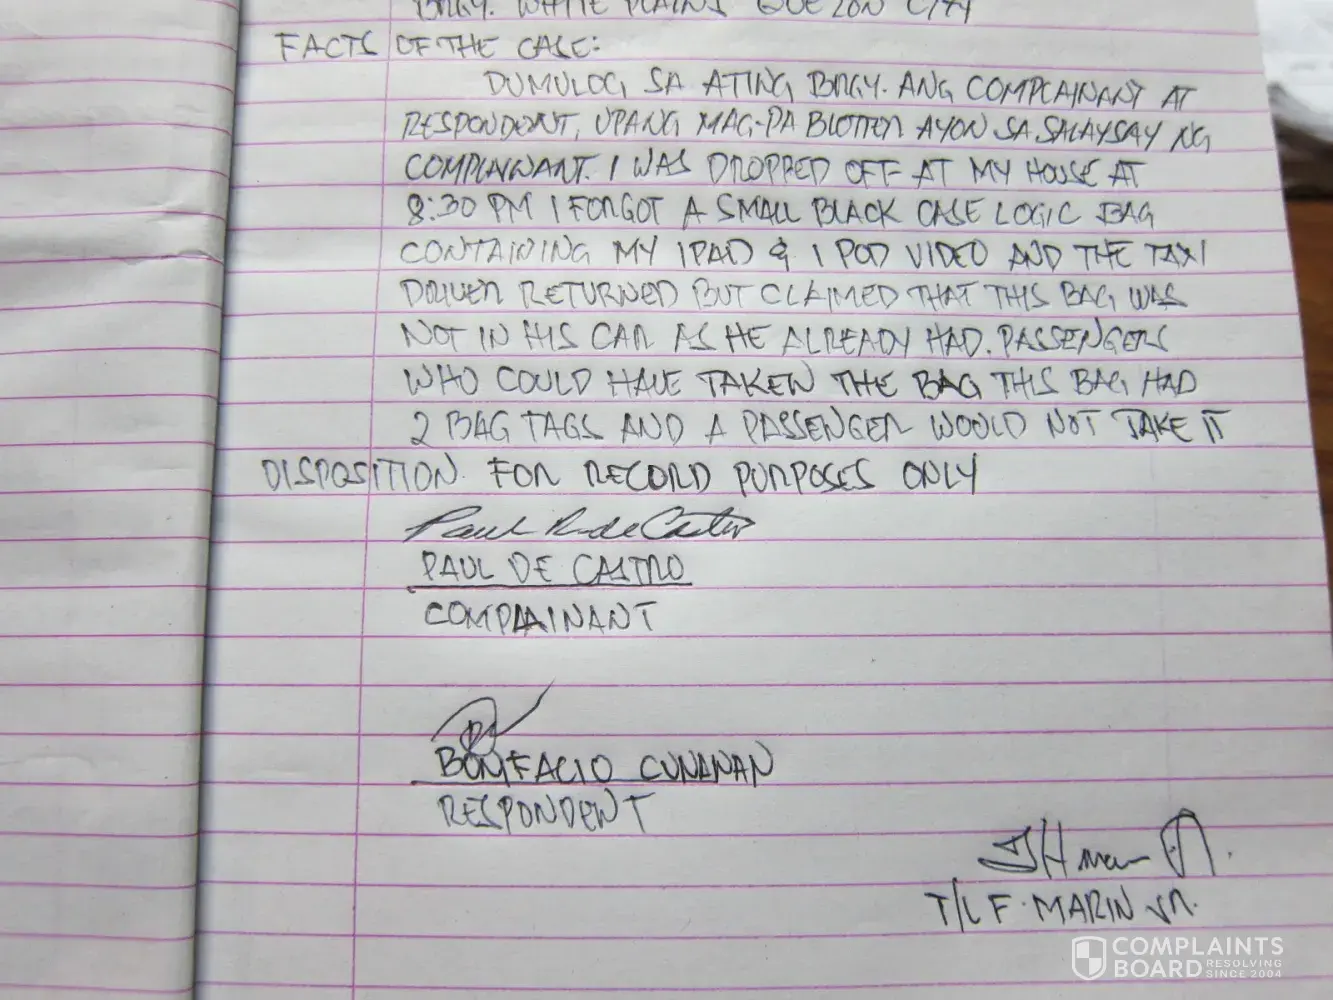 BRGY. WHITE PLAINS QUEZON CITY
FACTS OF THE CASE:
DUMULOG SA ATING BRGY. ANG COMPLAINANT AT
RESPONDENT, UPANG MAG-PA BLOTTER AYON SA SALAYSAY NG
COMPLAINANT. I WAS DROPPED OFF AT MY HOUSE AT
8:30 PM I FORGOT A SMALL BLACK CASE LOGIC BAG
CONTAINING MY IPAD & I POD VIDEO AND THE TAXI
DRIVER RETURNED BUT CLAIMED THAT THIS BAG WAS
NOT IN HIS CAR AS HE ALREADY HAD. PASSENGERS
WHO COULD HAVE TAKEN THE BAG THIS BAG HAD
2 BAG TAGS AND A PASSENGER WOULD NOT TAKE IT
DISPOSITION. FOR RECORD PURPOSES ONLY
PAUL DE CASTRO
COMPLAINANT
BONIFACIO CUNANAN
RESPONDENT
T/L F. MARIN JR.
COMPLAINTS
BOARD RESOLVING
SINCE 2004